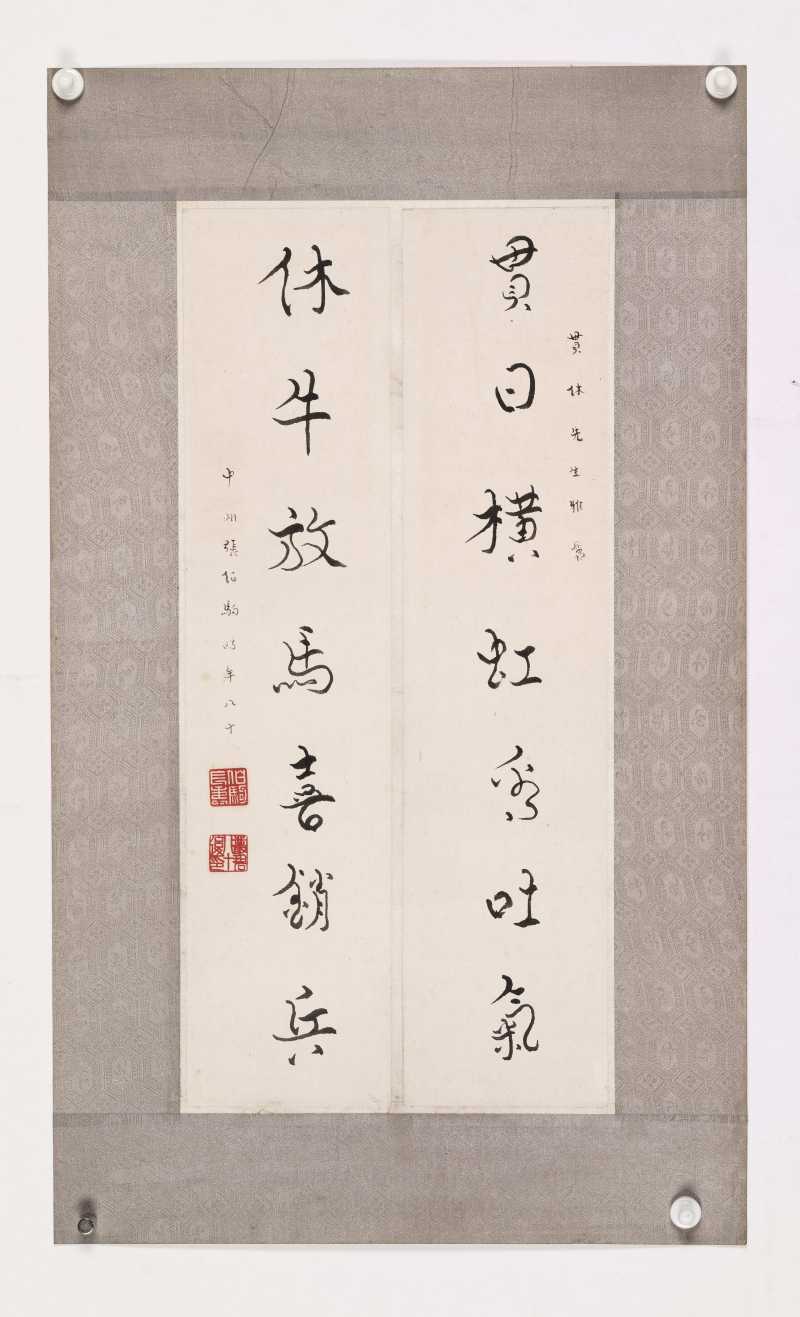 貫休先生雅屬
貫日橫虹看吐氣
休牛放馬喜銷兵
中州張伯駒時年八十
伯駒長壽